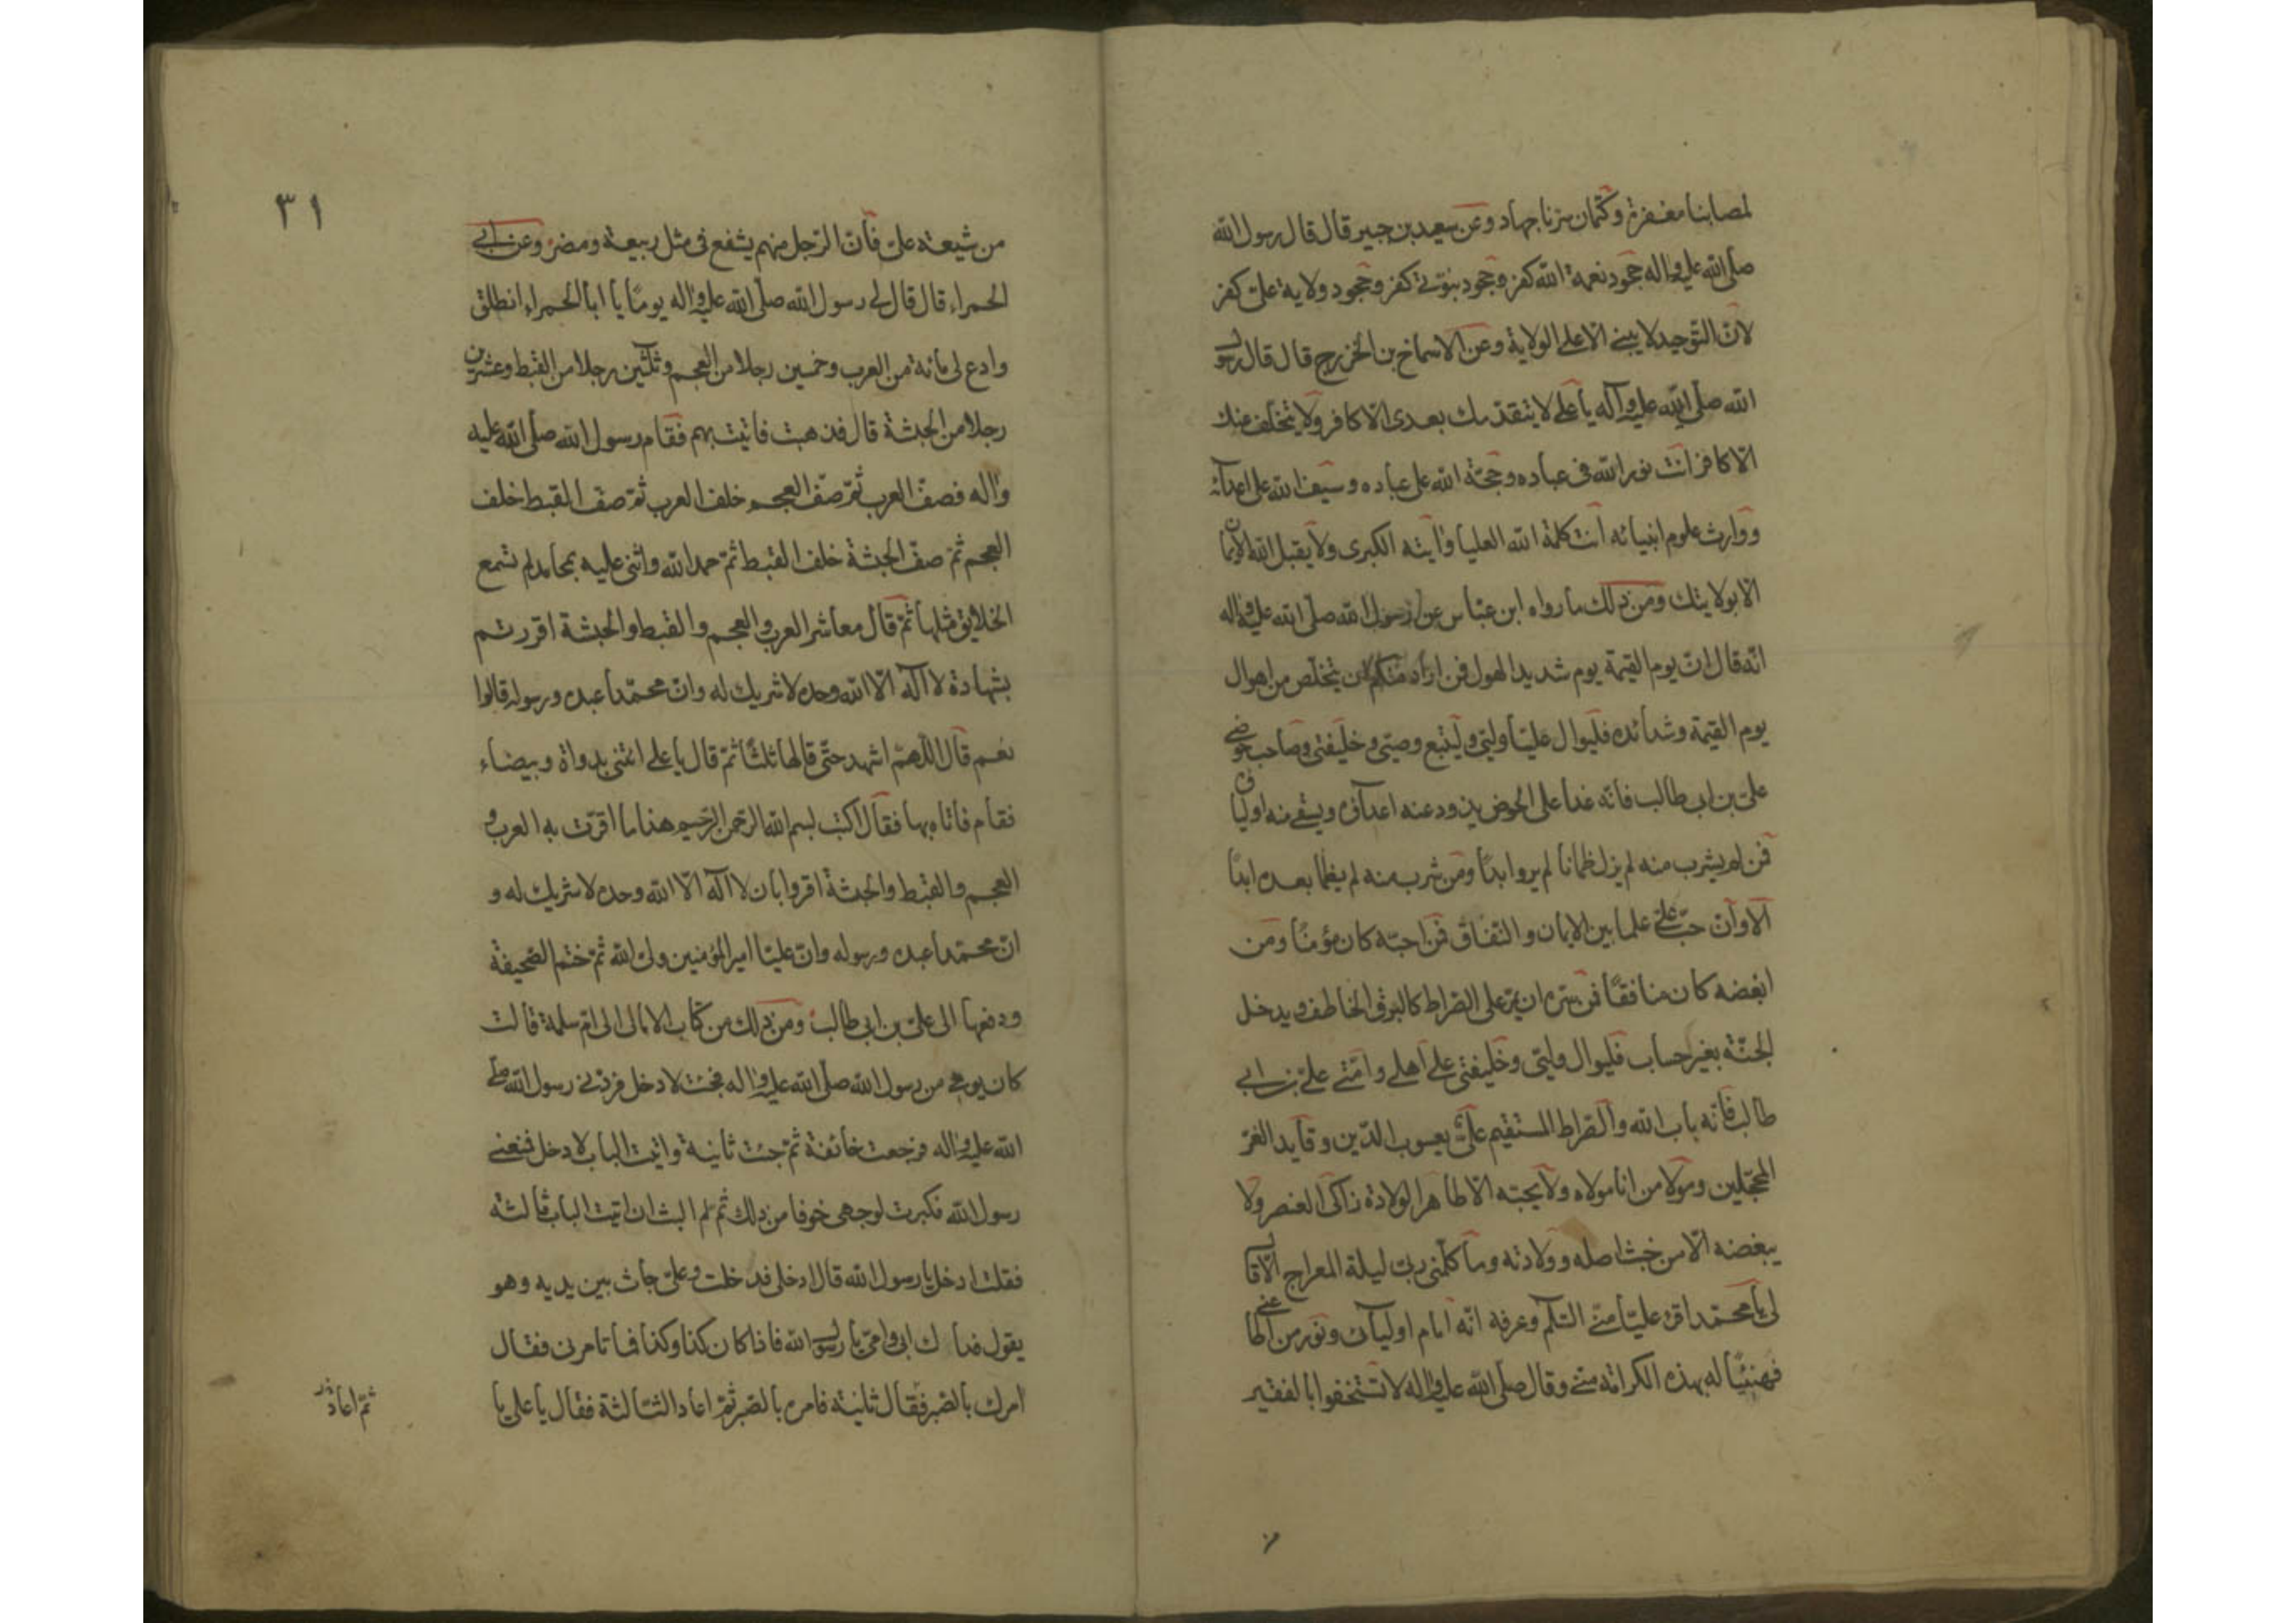 لمصابنا مغفرة وكتمان سرنا جهاد وعن سعيد بن جبير قال قال رسول الله
صلى الله عليه واله جحود نعمة الله كفر وجحود نبوتي كفر وجحود ولاية علي كفر
لان التوحيد لا يبنى الا على الولاية وعن الاسماخ بن الخزرج قال قال رسول
الله صلى الله عليه وآله يا علي لا يتقدمك بعدى الا كافر ولا يتخلف عنك
الا كافر انت نور الله فى عباده وحجة الله على عباده وسيف الله على اعدائه
ووارث علوم انبيائه انت كلمة الله العليا وآيته الكبرى ولا يقبل الله الايمان
الا بولايتك ومن ذلك ما رواه ابن عباس عن رسول الله صلى الله عليه واله
انه قال ان يوم القيمة يوم شديد الهول فمن اراد منكم ان يتخلص من اهوال
يوم القيمة وشدائده فليوال عليا وليى وليتبع وصيى وخليفتى وصاحب حوضى
على بن ابى طالب فانه غدا على الحوض يذود عنه اعدائى ويسقى منه اوليائى
فمن لم يشرب منه لم يزل ظمانا لم يرو ابدا ومن شرب منه لم يظما بعده ابدا
الا وان حب علي علما بين الايمان والنفاق فمن احبه كان مؤمنا ومن
ابغضه كان منافقا فمن سره ان يمر على الصراط كالبرق الخاطف ويدخل
الجنة بغير حساب فليوال وليى وخليفتى على اهلي وامتي علي بن ابي
طالب فانه باب الله والصراط المستقيم علي يعسوب الدين وقايد الغر
المحجلين ومولا من انا مولاه ولا يحبه الا طاهر الولادة زاكى العنصر ولا
يبغضه الا من خبث اصله وولادته وما كلمنى ربى ليلة المعراج الا قال
لى يا محمد اقرء عليا منى السلم وعرفه انه امام اوليائى ونور من اطاعنى
فهنيئا له بهذه الكرامة مني وقال صلى الله عليه واله لا تستخفوا بالفقير
٣١
من شيعة على فان الرجل منهم يشفع فى مثل ربيعة ومضر وعن ابي
الحمراء قال قال لى رسول الله صلى الله عليه واله يوما يا ابا الحمراء انطلق
وادع لى مائة من العرب وخمسين رجلا من العجم وثلثين رجلا من القبط وعشرين
رجلا من الحبشة قال فذهبت فاتيت بهم فقام رسول الله صلى الله عليه
واله فصف العرب ثم صف العجم خلف العرب ثم صف القبط خلف
العجم ثم صف الحبشة خلف القبط ثم حمد الله واثنى عليه بمحامد لم تسمع
الخلايق مثلها ثم قال معاشر العرب والعجم والقبط والحبشة اقررتم
بشهادة لا اله الا الله وحده لا شريك له وان محمدا عبده ورسوله قالوا
نعم قال اللهم اشهد حتى قالها ثلثا ثم قال يا علي ائتنى بدواة وبيضاء
فقام فاتاه بها فقال اكتب بسم الله الرحمن الرحيم هذا ما اقرت به العرب و
العجم والقبط والحبشة اقروا بان لا اله الا الله وحده لا شريك له و
ان محمدا عبده ورسوله وان عليا امير المؤمنين ولى الله ثم ختم الصحيفة
ودفعها الى على بن ابى طالب ومن ذلك من كتاب الامالى الى ام سلمة قالت
كان يومى من رسول الله صلى الله عليه واله فجئت لادخل فردنى رسول الله صلى
الله عليه واله فرجعت خائفة ثم جئت ثانية واتيت الباب لادخل فمنعنى
رسول الله فكبرت لوجهى خوفا من ذلك ثم لم البث ان اتيت الباب ثالثة
فقلت ادخل يا رسول الله قال ادخلى فدخلت وعلى جاث بين يديه وهو
يقول فداك ابى وامى يا رسول الله فاذا كان كذا وكذا فما تامرنى فقال
امرك بالصبر فقال ثانية فامره بالصبر ثم اعاد الثالثة فقال يا على يا
ثم اعاد